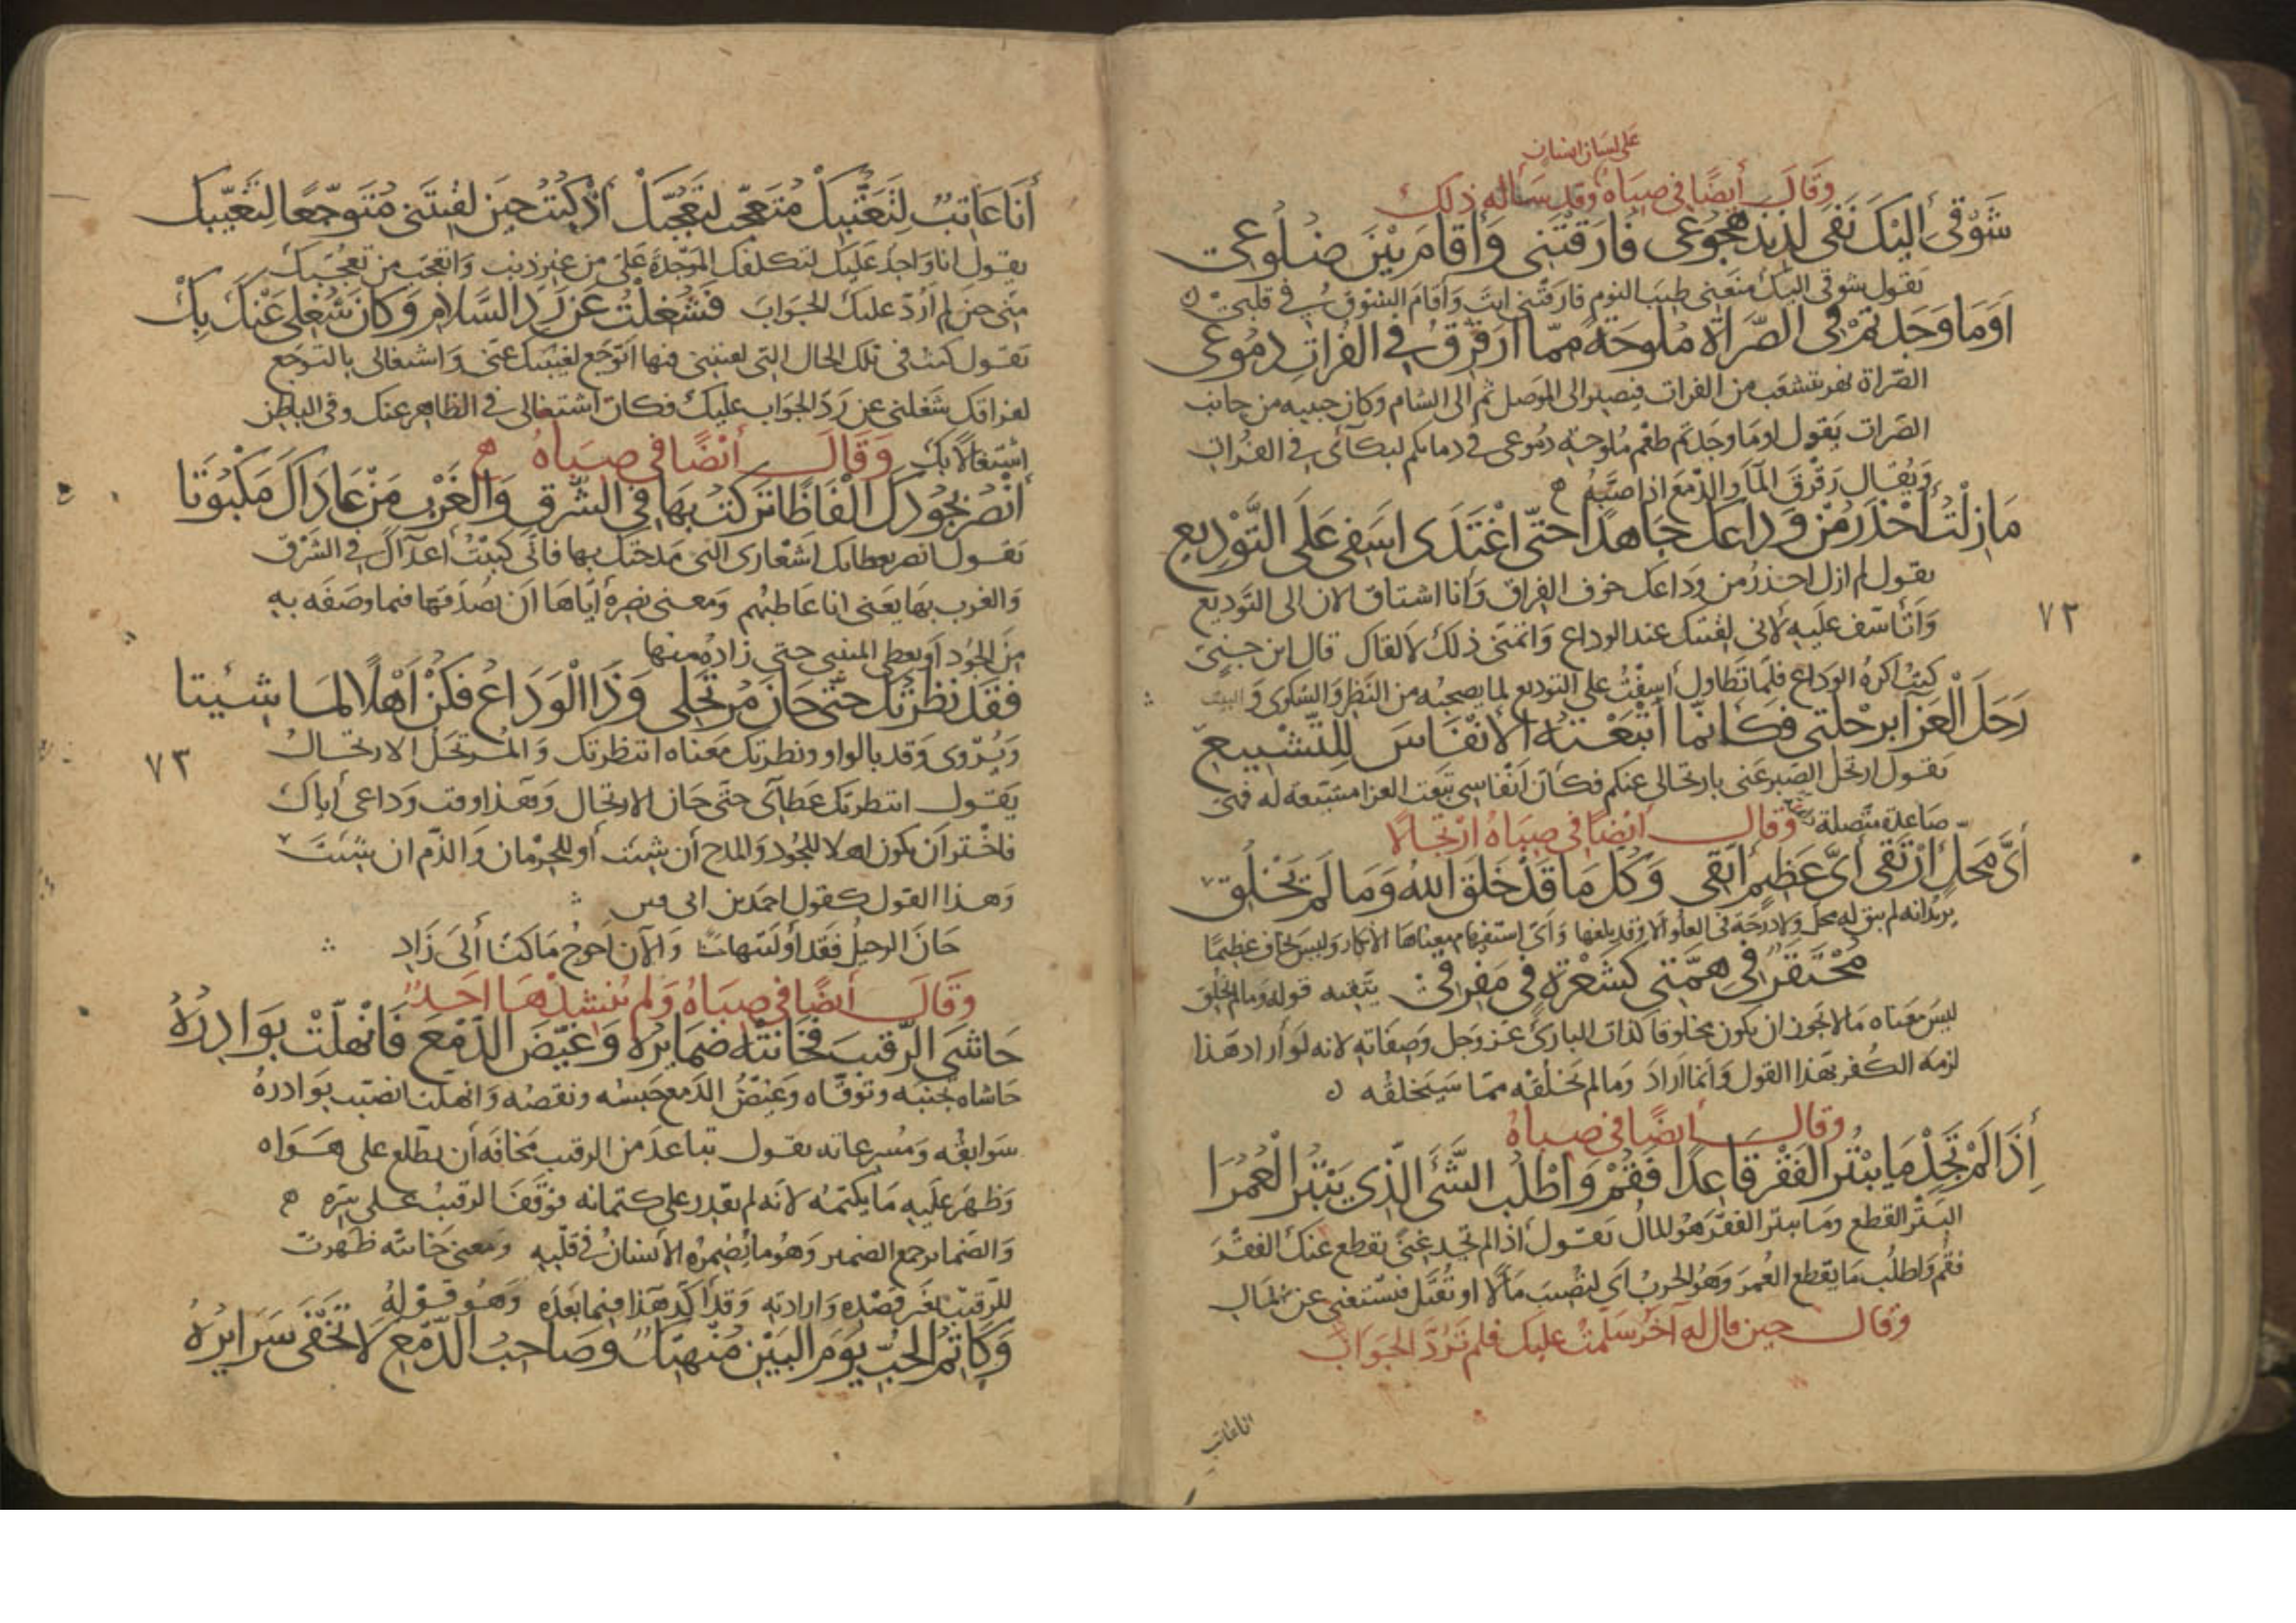 على لسان انسان
وقال أيضًا في صباه وقد سأله ذلك
شَوْقي إليْكَ نَفى لذيذَ هُجُوعى فَارقْتَنى وَأقامَ بيْنَ ضُلُوعى
يقول شوقى اليك منعنى طيب النوم فارقتنى انت وأقام الشوق في قلبى
اَوَمَا وَجَدتمْ فى الصَّراة مُلوحَةً ممّا ارَقرِقُ في الفُراتِ دموعى
الصّراة نهر يتشعب من الفرات فيصير الى الموصل ثم الى الشام وكان حبيبه من جانب
الصّرات يقول اوما وجدتم طعم ملوحة دموعى في دمائكم لبكآئى في الفرات
ويقال رقرق المآء والدّمع اذا صبّه ه
مَا زِلْتُ أحْذَرُ مِنْ وَداعِكَ جَاهدًا حتّى اغْتَدَى اسَفى عَلَى التَّوْدِيع
يقول لم ازل احذر من وداعك خوف الفراق وأنا اشتاق الان الى التوديع
وأتأسّف عليه لأنى لقيتك عند الوداع واتمنى ذلك لألقاك قال ابن جنى
كنت اكره الوداع فلمّا تطاول أسِفْتُ على التوديع لما يصحبه من النظر والشكوى و البث
رَحَلَ الْعَزآ برحْلَتى فكَأنّما أتْبَعْتُهُ الأنْفَاسَ لِلتَّشْييع
يقول ارتحل الصّبر عنى بارتحالى عنكم فكأن أنفاسى تبعت العزا مشيّعة له فهى
صاعدة متصلة وقال أيضًا في صباه ارتجالًا
أىَّ مَحلٍ ارْتَقى أىَّ عَظيمٍ أتقى وَكُل مَا قَدْ خَلَقَ الله وَمَا لَمْ يَخْلُق
يريد انه لم يبق له محل ولا درجة فى العلو الّا وقد بلغها وأى استفهام معناها الانكار وليس يخاف عظيمًا
مُحْتَقَرٌ فى هِمَّتى كشَعْرَةٍ في مَفرقى يتّجه قوله وما لم يخلق
ليس معناه ما لا يجوز ان يكون مخلوقا كذات البارئ عز وجل وصفاته لانه لو أراد هذا
لزمه الكفر بهذا القول وانما اراد وما لم يخلقه مما سيخلقه
وقال أيضًا في صباه
إذَا لَمْ تَجِدْ مَا يبْتُر الفَقْر قاعِدًا فَقُمْ وَاطْلُب الشَّئَ الّذى يَبْتُر الْعُمْرَا
البتر القطع وما يبتر الفقر هو المال يقول اذا لم تجد غنى يقطع عنك الفقر
فقم واطلب ما يقطع العمر وهو الحرب أى لتصيب مالًا او تقتل فتستغنى عن المال
وقال حين قال له آخر سلّمت عليك فلم تردّ الجواب
انا عاتب
٧٢
أنَا عَاتِبٌ لِتَعَتُّبِكْ مُتَعَجّبٌ لِتَعَجُّبِكْ أذْ كُنْتُ حينَ لقِيتَنى مُتَوجّعًا لِتَغَيّبِك
يقول انا واجد عليك لتكلفك الموجدة على من غير ذنب واتعجب من تعجّبك
منّى حين لم أردّ عليك الجواب فَشُغِلْتُ عَن رَدِ السَّلامِ وَكانَ شُغْلى عَنْكَ بِكْ
يقول كنت فى تلك الحال التى لقيتنى فيها اتوجّع لغيبتك عنّى واشتغالى بالتوجّع
لفراقك شغلنى عن ردّ الجواب عليك فكان اشتغالى في الظاهر عنك وفى الباطن
اشتغالًا بك وقال أيضًا في صباه ه
أنْصُرْ بجُودكَ ألْفَاظًا تَركتُ بهَا في الشَّرقِ والغَرْبِ مَنْ عَادَاكَ مَكبُوتَا
يقول انصر بعطائك اشعارى التى مدحتك بها فانى كبتّ أعدآك في الشرق
والغرب بها يعنى انا عاطبهم ومعنى نصره أيّاها ان يصدقها فيما وصفه به
من الجود أو يعطى المنبى حتى زاده منها
فقَدْ نَظَرْتُكَ حتّى حَانَ مُرتَحَلى وَذَا الْوَدَاعُ فكُنْ أهْلًا لمَا شِئيتا
ويروى وقد بالواو ونظرتك معناه انتظرتك والمرتحل الارتحال
يقول انتظرتك عطآئى حتى حان الارتحال وهذا وقت وداعى أياك
فاختر أن يكون اهلا للجود والمدح أن شئت أو للحرمان والذّم ان شئت
وهذا القول كقول احمد بن ابى فنن
حان الرحيل فقد أوليتنا حسنًا والآن احوج ما كنّا ألى زاد
وقال أيضًا في صباه ولم ينشدها احد
حَاشَى الرّقيبَ فخَانَتْه ضَمَائرُه وَغَيّضَ الدّمْعَ فَانْهَلّتْ بَوَادِرُهُ
حاشاه تجنبه وتوقّاه وغيّض الدمع حبسه ونقصه وانهلت انصبّت بوادره
سوابقه ومسرعاته يقول تباعد من الرقيب مخافة أن يطّلع على هواه
وظهر عليه ما يكتمه لانه لم يقدر على كتمانه فوقف الرقيب على سرّه ه
والضمائر جمع الضمير وهو ما يضمره الأنسان في قلبه ومعنى خانته ظهرت
للرقيب بغير قصده وارادته وقد أكّد هذا فيما بعده وهو قوله
وَكاتِمُ الحُبّ يَوْمَ البَيْنِ مُنْهَتكٌ وصَاحِبُ الدّمْعِ لا تَخْفَى سَرَائرُهُ
٧٣